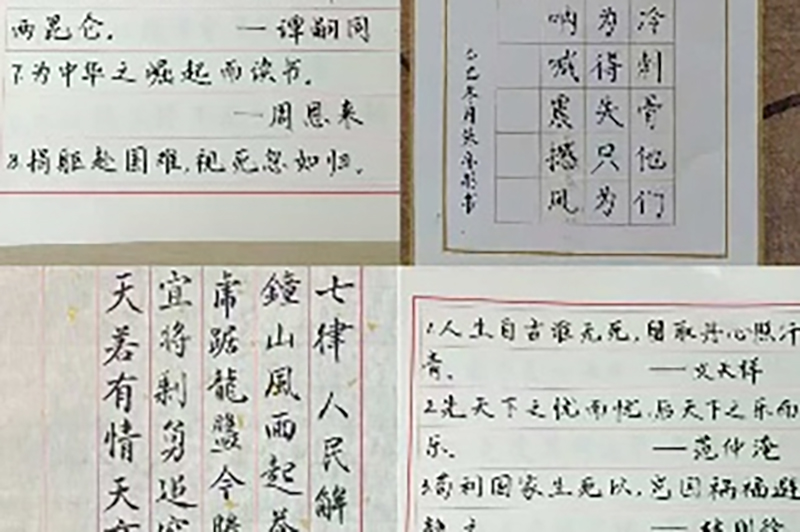 两昆仑。 —谭嗣同
7.为中华之崛起而读书。
—周恩来
8.捐躯赴国难,视死忽如归。
冷刺骨他们
为得失只为
呐喊震撼风
七律 人民解
鐘山風雨起蒼
虎踞龍盤今勝
宜將剩勇追窮
天若有情天亦
1.人生自古谁无死,留取丹心照汗
青。 —文天祥
2.先天下之忧而忧,后天下之乐而
乐。 —范仲淹
3.苟利国家生死以,岂因祸福避
趋之 —林则徐